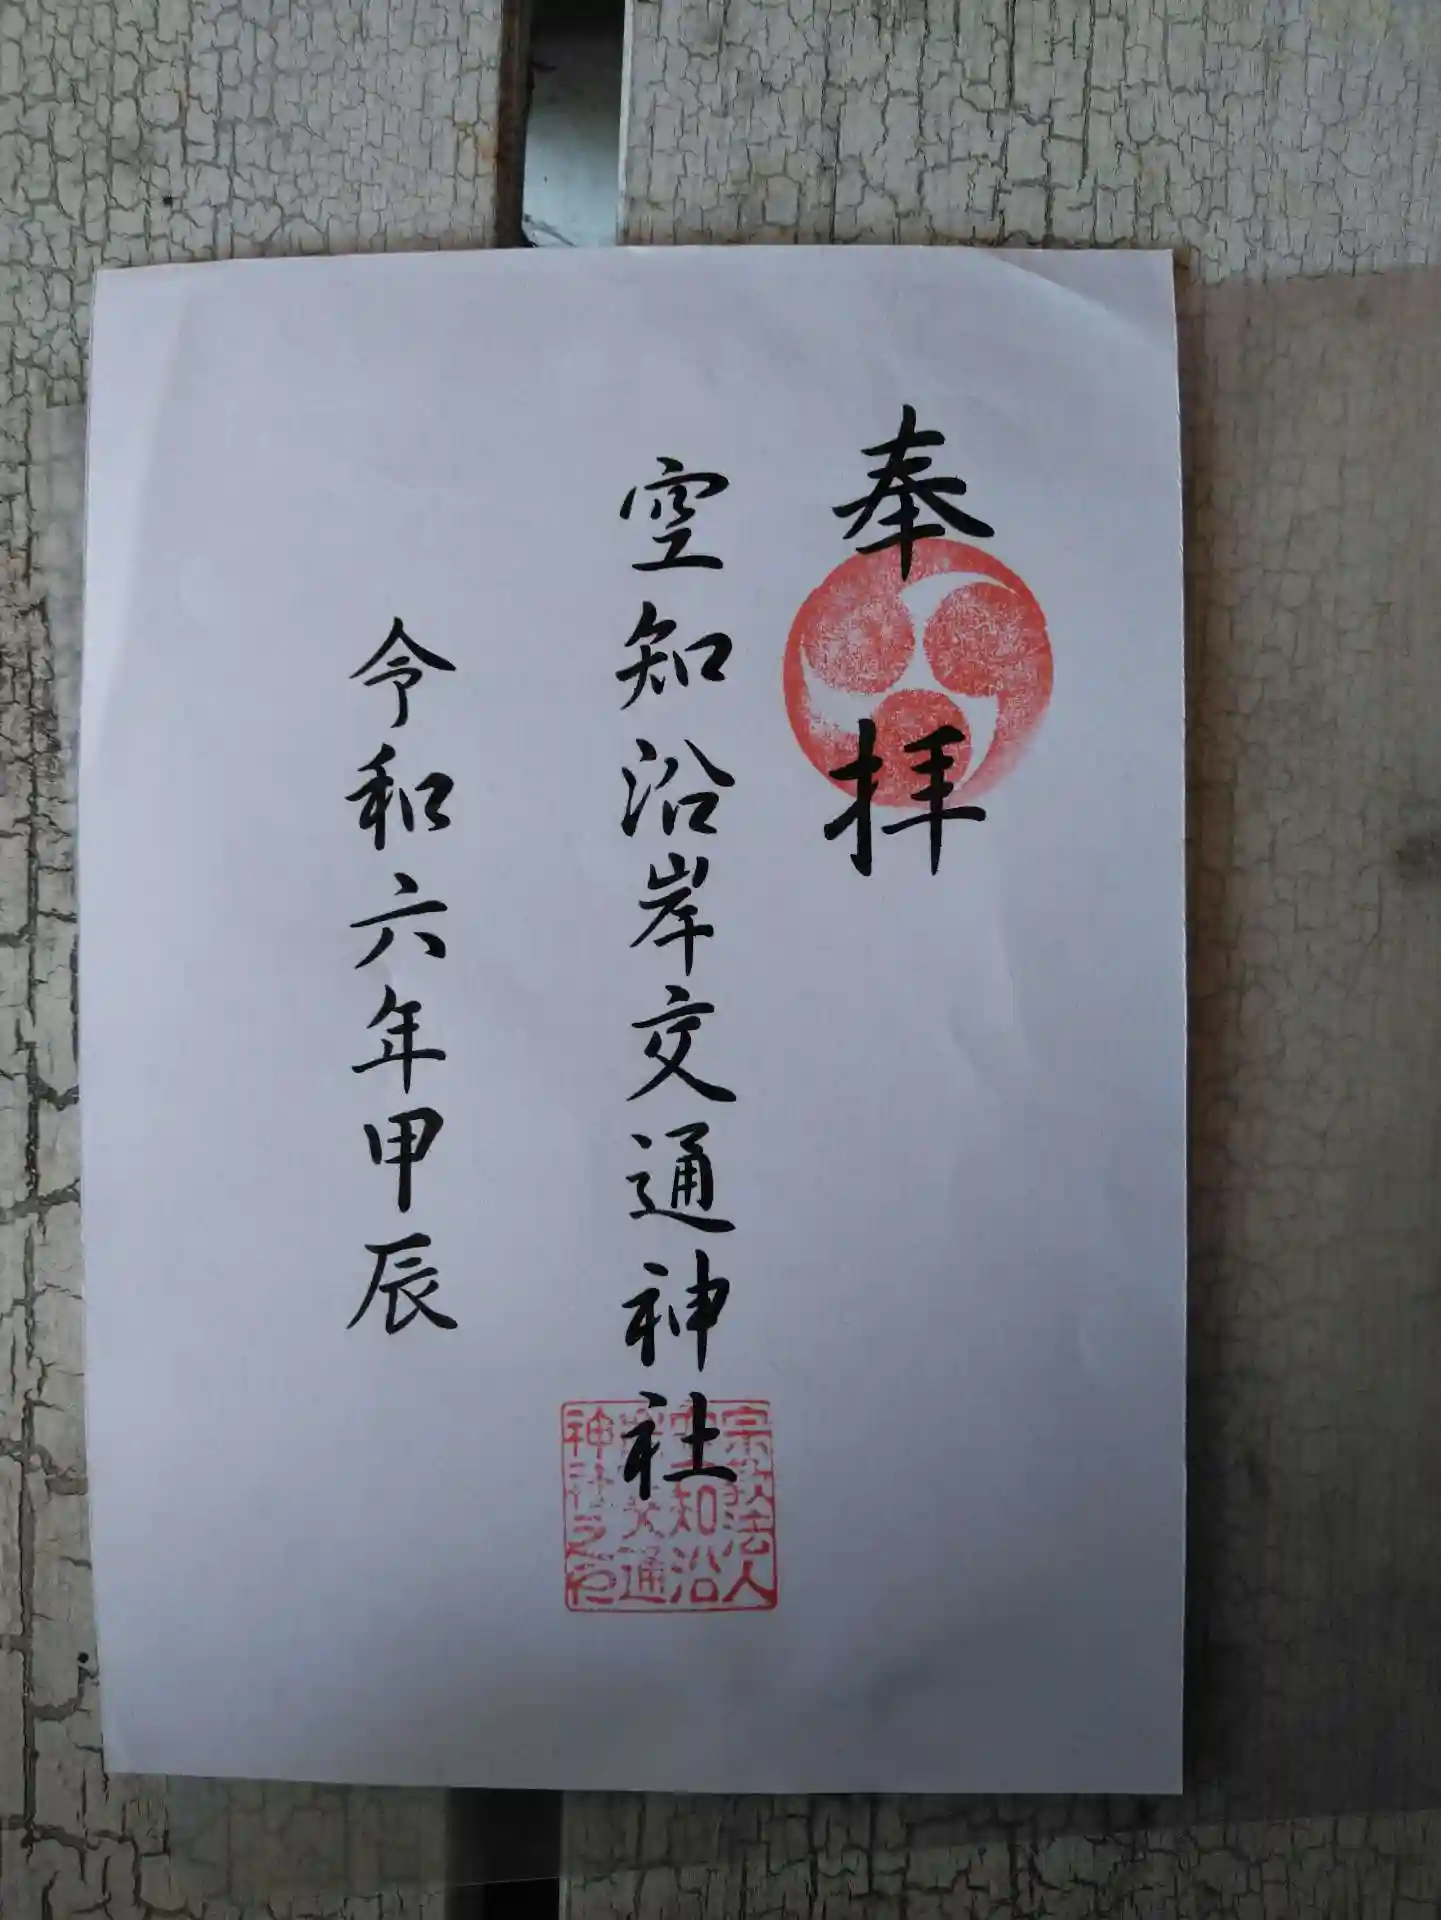 奉拝
空知沿岸交通神社
令和六年甲辰
宗教法人
空知沿
岸交通
神社之印